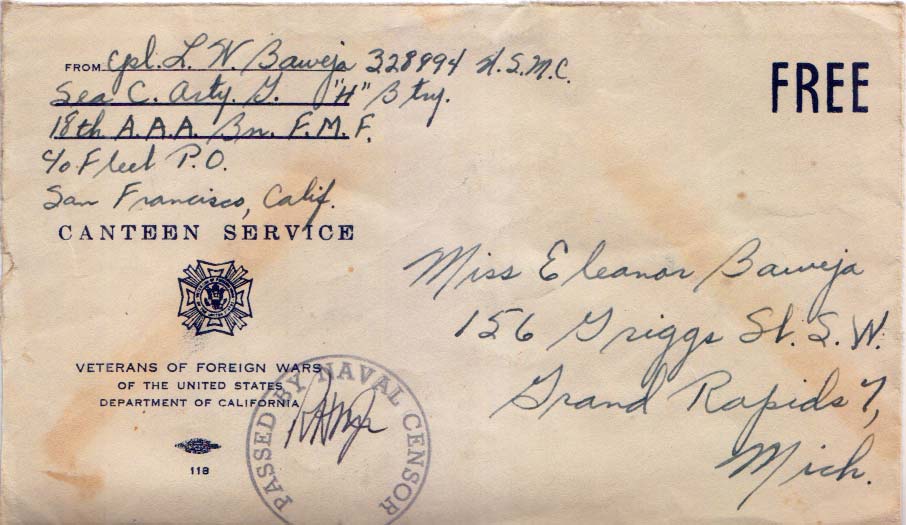 FROM Cpl. L. W. Baweja 328994 U.S.M.C.
Sea C. Arty. G. "H" Btry.
18th A.A.A. Bn. F.M.F.
c/o Fleet P.O.
San Francisco, Calif.
CANTEEN SERVICE
VETERANS OF FOREIGN WARS
OF THE UNITED STATES
DEPARTMENT OF CALIFORNIA
118
FREE
Miss Eleanor Baweja
156 Griggs St. S.W.
Grand Rapids 7,
Mich.
PASSED BY NAVAL CENSOR